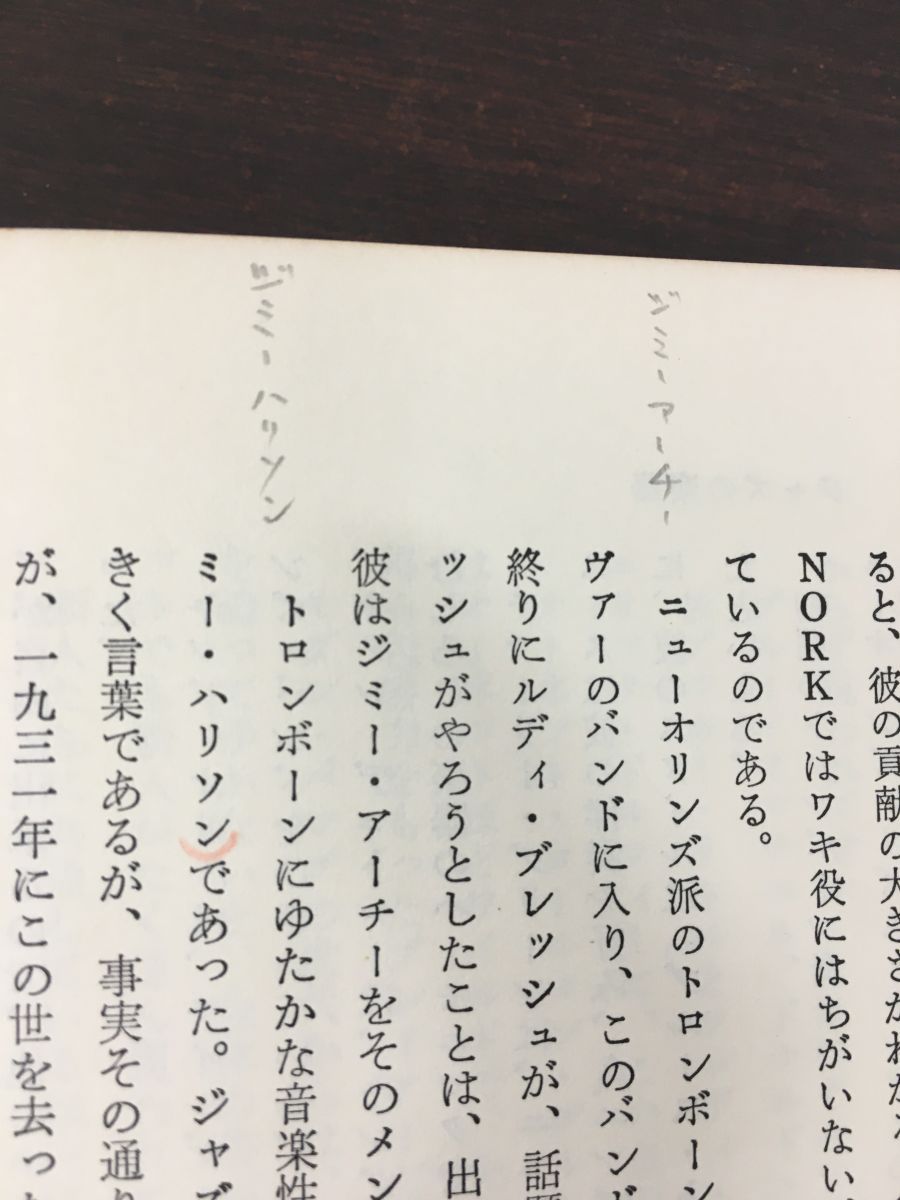 ジミーアーチー
ジミーハリソン
ると、彼の貢献の大きさがわかる
NORKではワキ役にはちがいない
ているのである。
ニューオリンズ派のトロンボーン
ヴァーのバンドに入り、このバンド
終りにルディ・ブレッシュが、話題
ッシュがやろうとしたことは、出
彼はジミー・アーチーをそのメン
トロンボーンにゆたかな音楽性
ミー・ハリソンであった。ジャズ
きく言葉であるが、事実その通り
が、一九三一年にこの世を去った